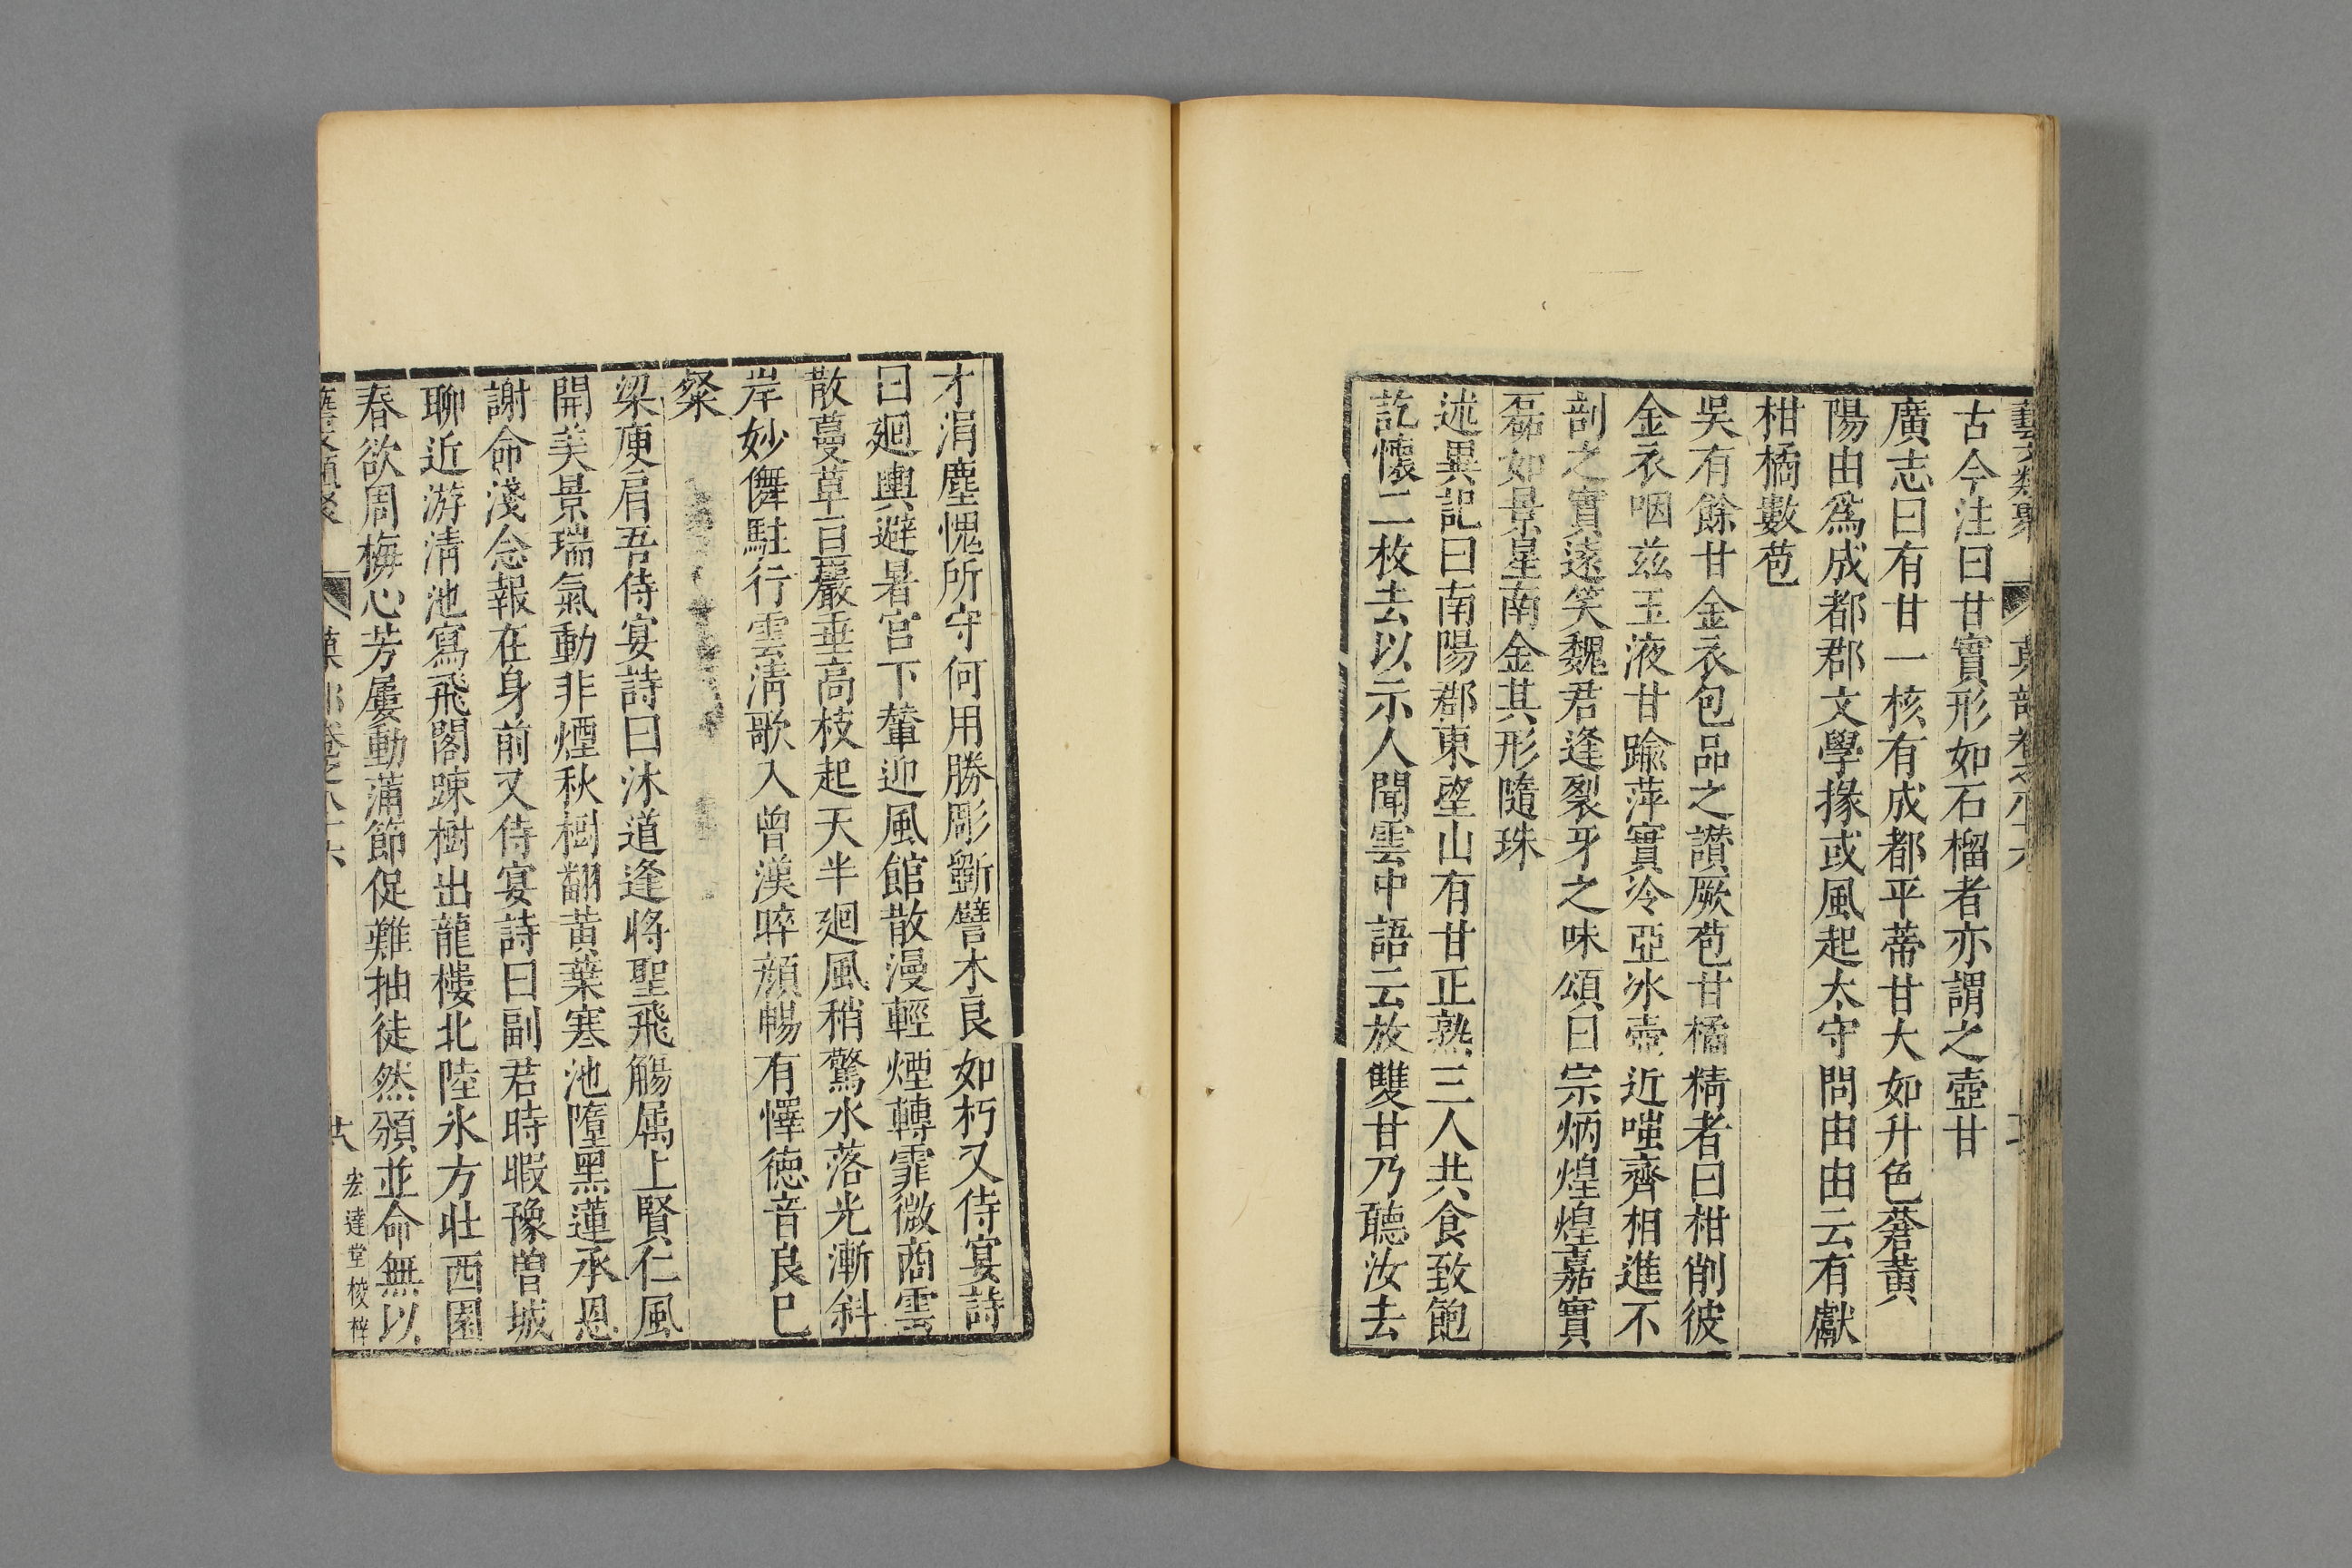 藝文類聚 菓部卷之八十六
古今注曰甘實形如石榴者亦謂之壺甘
廣志曰有甘一核有成都平蒂甘大如升色蒼黃
陽由爲成都郡文學掾或風起太守問由由云有獻
柑橘數苞
吳有餘甘金衣包品之讚厥苞甘橘精者曰柑削彼
金衣咽茲玉液甘踰萍實冷亞冰壺近嗤齊相進不
剖之實遠笑魏君逢裂牙之味頌曰宗炳煌煌嘉實
磊如景星南金其形隨珠
述異記曰南陽郡東望山有甘正熟三人共食致飽
訖懷二枚去以示人聞雲中語云放雙甘乃聽汝去
才涓塵愧所守何用勝彫斲譬木良如朽又侍宴詩
曰廻輿避暑宮下輦迎風館散漫輕煙轉霏微商雲
散蔓草亘巖垂高枝起天半廻風稍驚水落光漸斜
岸妙儛駐行雲清歌入曾漢晬顏暢有懌德音良巳
粲
梁庾肩吾侍宴詩曰沐道逢將聖飛觴属上賢仁風
開美景瑞氣動非煙秋樹翻黃葉寒池隨黑蓮承恩
謝命淺念報在身前又侍宴詩曰副君時暇豫曾城
聊近游清池寫飛閣踈樹出龍樓北陸氷方壯西園
春欲周梅心芳屢動蒲節促難抽徒然頒並命無以
藝文類聚 菓部卷之八十六 廿八 宏達堂校梓